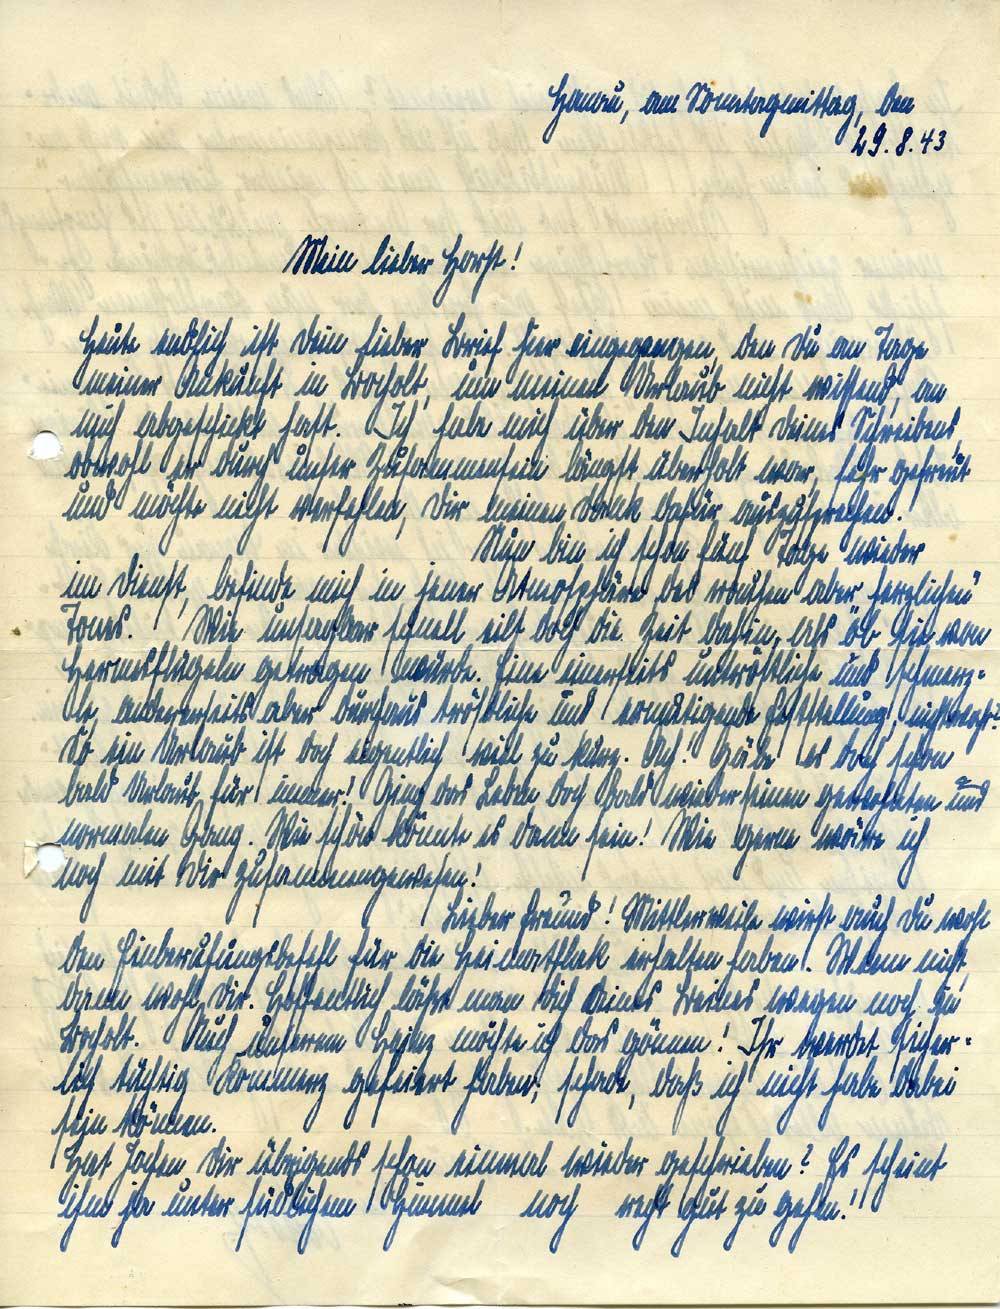 Hanau, am Sonntagmittag, den
29.8.43
Mein lieber Horst!
Heute endlich ist Dein lieber Brief hier eingegangen, den Du am Tage
meiner Ankunft in Bocholt, um meinen Urlaub nicht wissend, an
mich abgeschickt hast. Ich habe mich über den Inhalt Deines Schreibens,
obwohl er durch unser Zusammensein längst überholt war, sehr gefreut
und möchte nicht verfehlen, Dir meinen Dank dafür auszusprechen.
Nun bin ich schon fünf Tage wieder
im Dienst, befinde mich in jener Atmosphäre des rauhen aber herzlichen
Tones. Wie unsagbar schnell eilt doch die Zeit dahin, als ob sie von
Hermesflügeln getragen würde. Eine einerseits untröstliche und schmerz=
le, andererseits aber durchaus tröstliche und ermutigende Feststellung, nicht wahr?
So ein Urlaub ist doch eigentlich viel zu kurz. Ach! Gäbe es doch schon
bald Urlaub für immer! Ging das Leben doch bald wieder seinen gewohnten und
normalen Gang. Wie schön könnte es dann sein! Wie gern wäre ich
noch mit Dir zusammengewesen!
Lieber Freund! Mittlerweile wirst auch Du wohl
den Einberufungsbefehl für die Heimatflak erhalten haben. Wenn nicht,
dann wohl Dir. Hoffentlich läßt man Dich Deines Beines wegen noch in
Bocholt. Auch unserem Heinz möchte ich das gönnen! Ihr werdet sicher=
lich tüchtig Kommerz gefeiert haben; schade, daß ich nicht habe dabei
sein können.
Hat Jochen Dir übrigends schon einmal wieder geschrieben? Es scheint
ihm ja unter südlichem Himmel noch recht gut zu gehen!